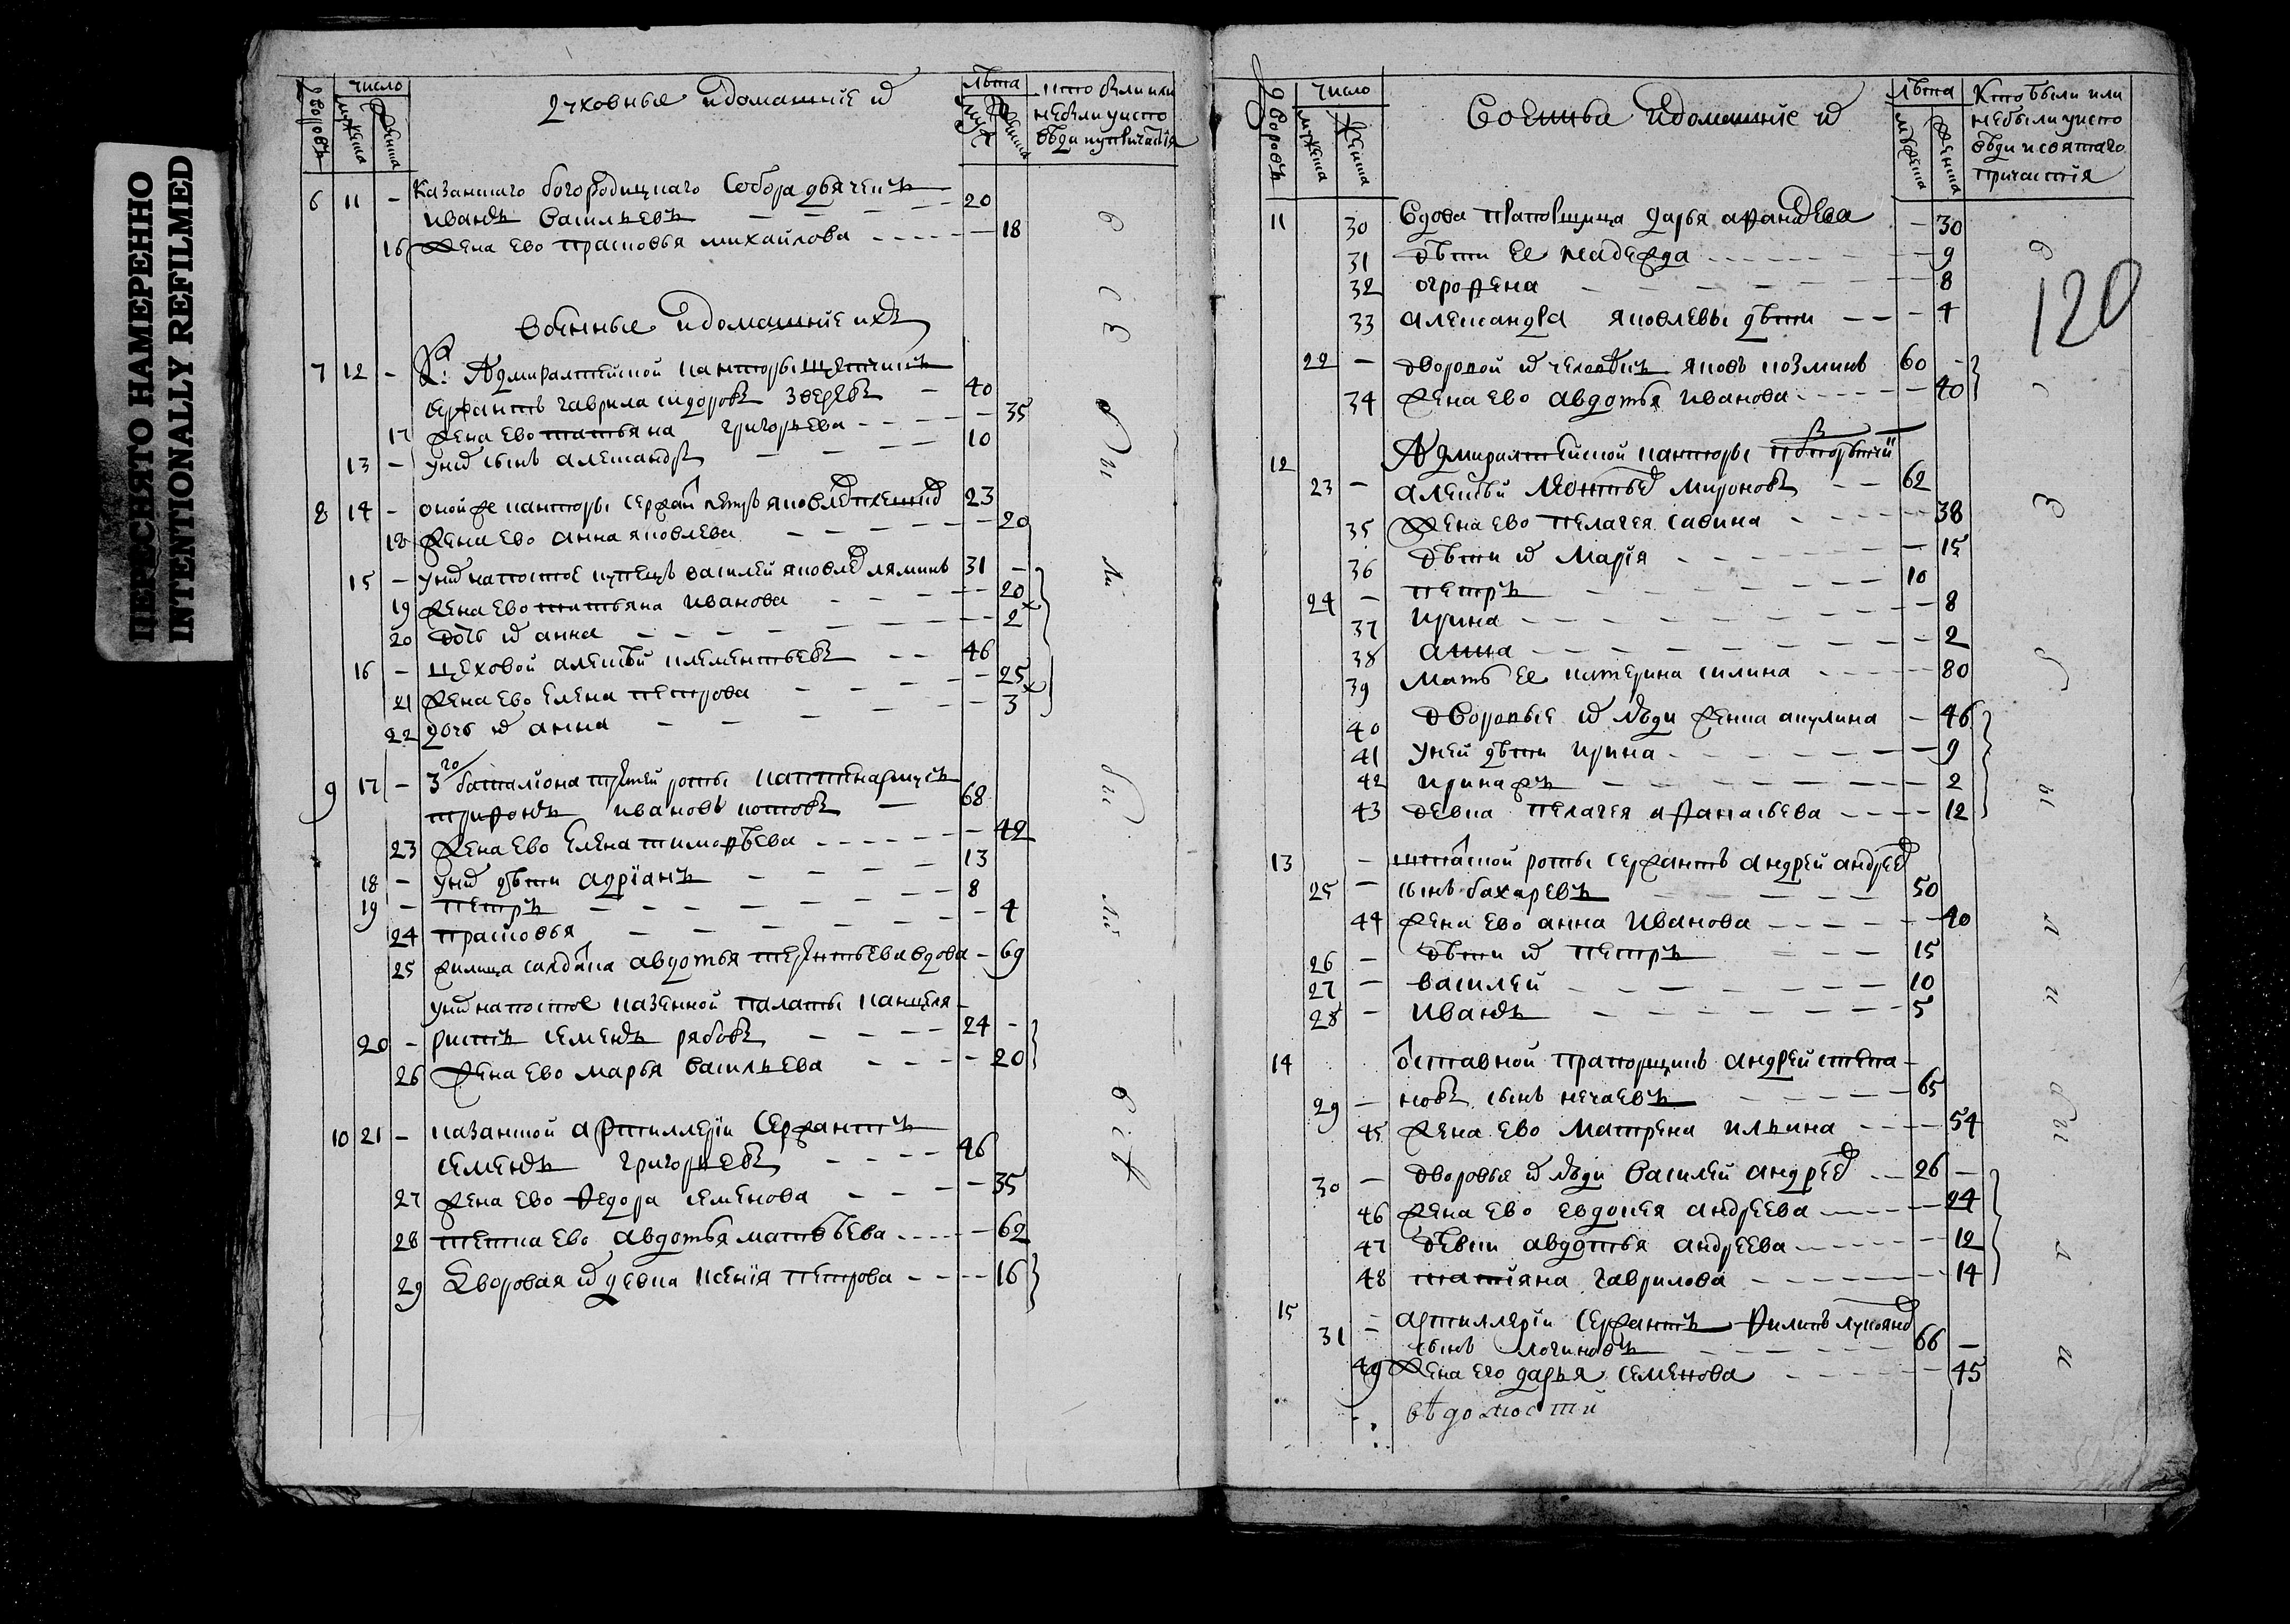 ПЕРЕСНЯТО НАМЕРЕННО
INTENTIONALLY REFILMED
дворовъ
число
мужеска
женска
духовные и домашние их
лѣта
муж
женска
кто были или
не были у испо
вѣди и причастія
6 11 - Казанскаго богородицкаго собора дьячекъ
иванъ васильевъ - - - - 20
16 жена ево прасковья михайлова - - - - - 18
военные и домашние ихъ
7 12 - Адмиралтейской канторы
сержантъ гаврила сидоровъ зверевъ - 40
17 жена ево татьяна григорьева - - - - 35
13 - у них сынъ александръ - - - 10
8 14 - оной же канторы сержан петръ яковлев 23
18 жена ево анна яковлева - - - - - 20
15 - у них на постое купецъ василей яковлев ляминъ 31 -
19 жена ево татьяна иванова - - - - 20
20 дочь их анна - - - - - 2
16 - цеховой алексѣй клементьевъ - - 46
21 жена ево елена петрова - - - - 25
22 дочь их анна - - - - - 3
9 17 - 3го баталіона третей роты каптенармусъ
трифонъ ивановъ котовъ - 68
23 жена ево елена тимофѣева - - - - - 42
18 - у них дѣти адріанъ - - - - 13
19 - петръ - - - - - - 8
24 прасковья - - - - - - 4
25 жилица салдатка авдотья терентьева вдова - 69
у них на постое казенной палаты канцеля-
20 - ристъ семенъ рябовъ - - - 24 -
26 жена ево марья васильева - - - - 20
10 21 - казанской артиллеріи сержантъ
семенъ григорьевъ - - - - 46
27 жена ево федора семенова - - - - 35
28 тетка ево авдотья матвѣева - - - - - 62
29 дворовая их девка ксенія петрова - - - - 16
дворовъ
число
мужеска
женска
военныя и домашніе их
лѣта
мужеска
женска
Кто были или
не были у испо
вѣди и святаго
причастія
120
11 30 вдова прапорщица дарья афанасева - 30
31 дѣти ее надежда - - - - - - - 9
32 огрофена - - - - - - 8
33 александра яковлевы дѣти - - - 4
22 - дворовой их человѣкъ яковъ козминъ 60 -
34 жена ево авдотья иванова - - - - - 40
12 Адмиралтейской канторы
23 - алексѣй леонтьев мироновъ - - 62
35 жена ево пелагея савина - - - - - 38
36 дѣти их марія - - - - - - 15
24 - петръ - - - - - 10
37 ирина - - - - - - - 8
38 анна - - - - - - - 2
39 мать ее катерина силина - - - - - 80
40 дворовые их люди женка акулина - 46
41 у ней дѣти ирина - - - - - - 9
42 иринархъ - - - - - - - 2
43 девка пелагея афанасьева - - - - 12
13 - штатной роты сержантъ андрей андреев
25 - сынъ бахаревъ - - - - - 50
44 жена ево анна иванова - - - - - - 40
26 - дѣти их петръ - - - 15
27 - василей - - - - - - - 10
28 - иванъ - - - - - - - 5
14 отставной прапорщикъ андрей степа-
29 - новъ сынъ нечаевъ - - - - - 65
45 жена ево матрена ильина - - - - 54
30 - дворовыя их люди василей андреев - - 26 -
46 жена ево евдокея андреева - - - - - 24
47 девки авдотья андреева - - - - - - 12
48 татіяна гаврилова - - - - - - - 14
15 - артиллеріи сержантъ филипъ лукоянов
31 сынъ логиновъ - - - - - - 66 -
49 жена его дарья семенова - - - - - 45
вѣдомости